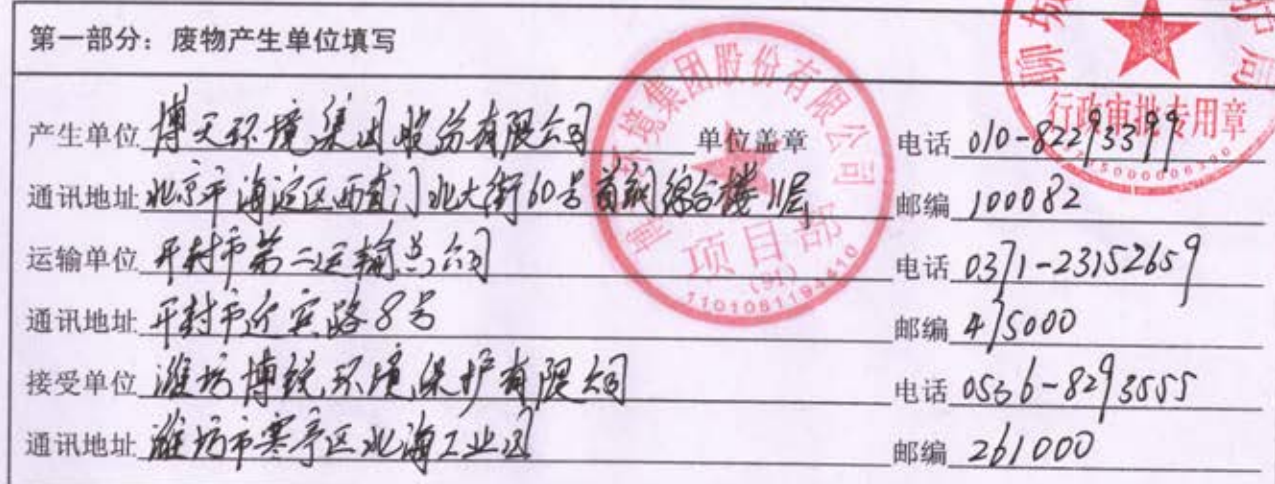 第一部分：废物产生单位填写
产生单位 博天环境集团股份有限公司 单位盖章 电话 010-82293399
通讯地址 北京市海淀区西直门北大街60号首钢综合楼11层 邮编 100082
运输单位 开封市第二运输总公司 电话 0371-23152659
通讯地址 开封市迎宾路8号 邮编 475000
接受单位 潍坊博锐环境保护有限公司 电话 0536-8293555
通讯地址 潍坊市寒亭区北海工业园 邮编 261000
环境集团股份有限公司
项目部
(91)
聊城
行政审批专用章